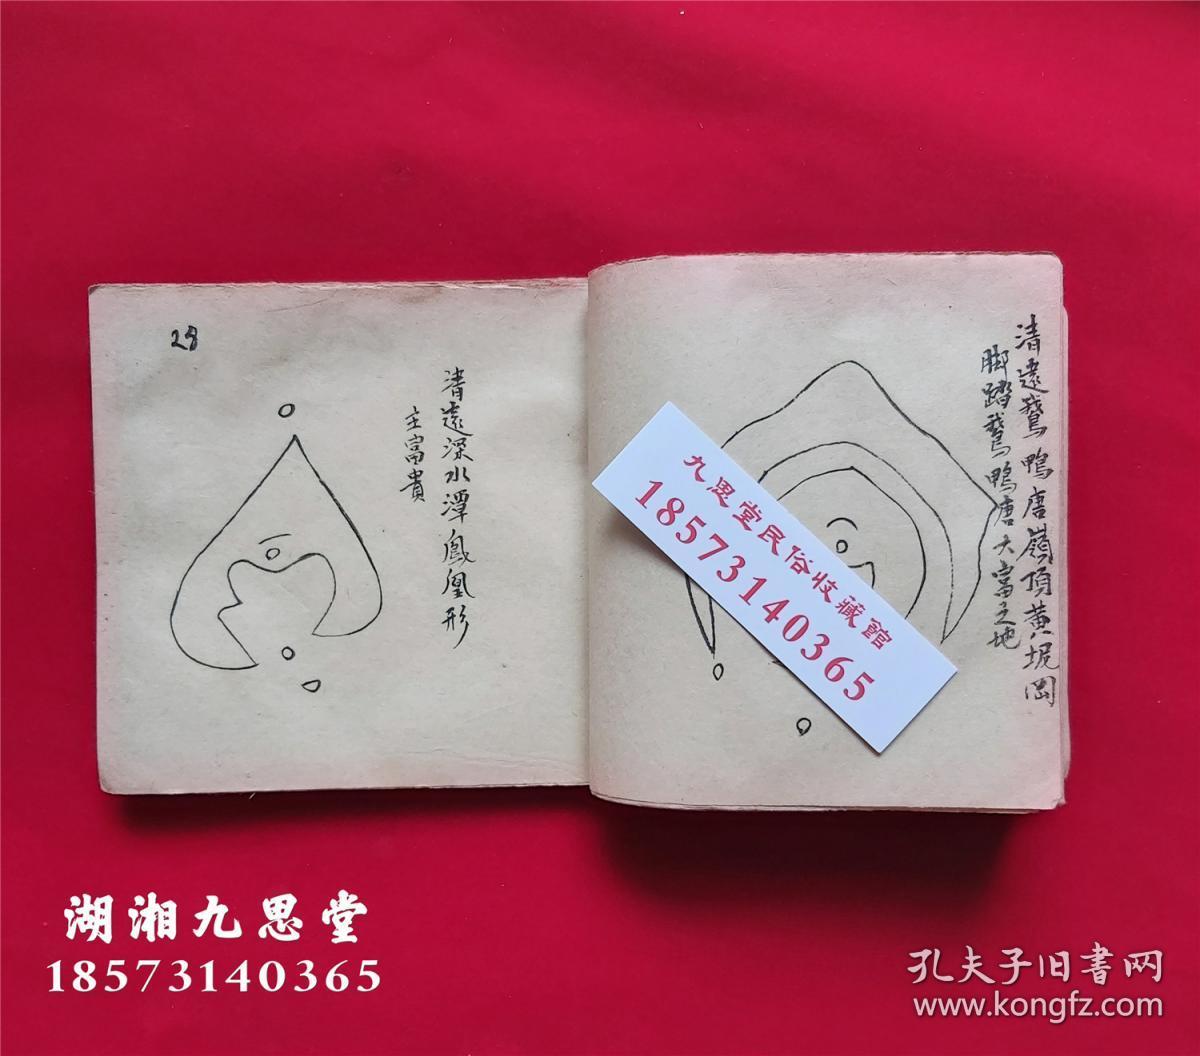 28
清遠深水潭鳳凰形
主富貴
清遠鵞鴨唐嶺頂黄坭岡
脚踏鵞鴨唐大富之地
九思堂民俗收藏館
18573140365
湖湘九思堂
18573140365
孔夫子旧书网
www.kongfz.com